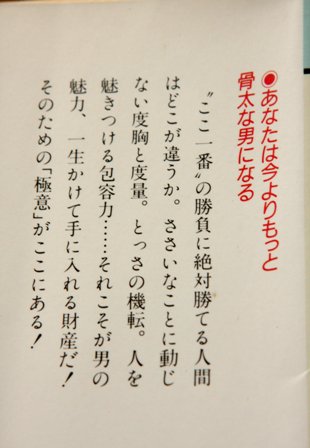 ●あなたは今よりもっと
骨太な男になる
〝ここ一番〟の勝負に絶対勝てる人間
はどこが違うか。ささいなことに動じ
ない度胸と度量。とっさの機転。人を
魅きつける包容力……それこそが男の
魅力、一生かけて手に入れる財産だ!
そのための「極意」がここにある!